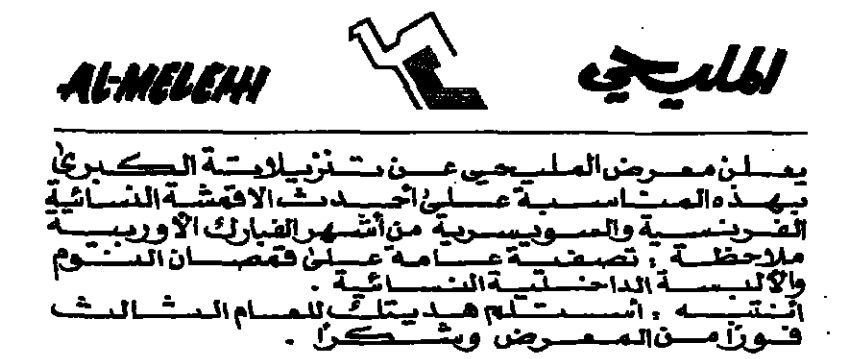 AL-MELEHI
المليحي
يعلن معرض المليحي عن تنزيلاته الكبرى
بهذه المناسبة على أحدث الاقمشة النسائية
الفرنسية والسويسرية من أشهر الفبارك الأوربية
ملاحظة : تصفية عامة على قمصان النوم
والألبسة الداخلية النسائية .
انتبه : استلم هديتك للعام الثالث
فوراً من المعرض وشكراً .